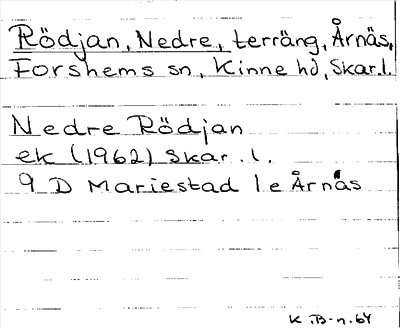 Rödjan, Nedre, terräng, Årnäs,
Forshems sn, Kinne hd, Skar.l.
Nedre Rödjan
ek (1962) Skar. l.
9 D Mariestad 1 e Årnäs
K.B-n.64